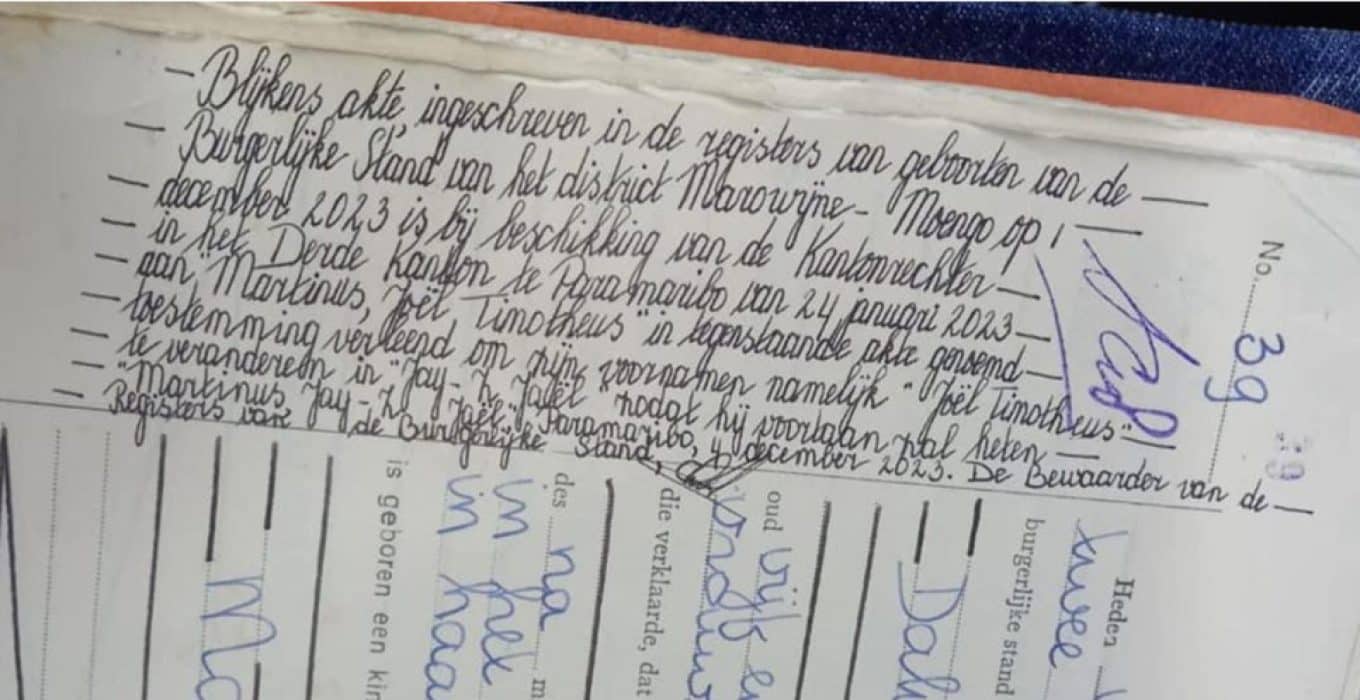 — Blijkens akte, ingeschreven in de registers van geboorten van de —
— Burgerlijke Stand van het district Marowijne - Moengo op 1 —
— december 2023 is bij beschikking van de Kantonrechter —
— in het Derde Kanton te Paramaribo van 24 januari 2023 —
— aan "Martinus, Joël Timotheus" in tegenstaande akte genoemd —
— toestemming verleend om zijn voornamen namelijk "Joël Timotheus" —
— te veranderen in "Jay-Z Jaël" zodat hij voortaan zal heten —
— "Martinus, Jay-Z Jaël". Paramaribo, 4 december 2023. De Bewaarder van de —
— Registers van de Burgerlijke Stand,
No. 39
39
Heden
twee
burgerlijke stand
Dah
oud vijf en
die verklaarde, dat
des na m
in het
in haa
is geboren een kin
Ma